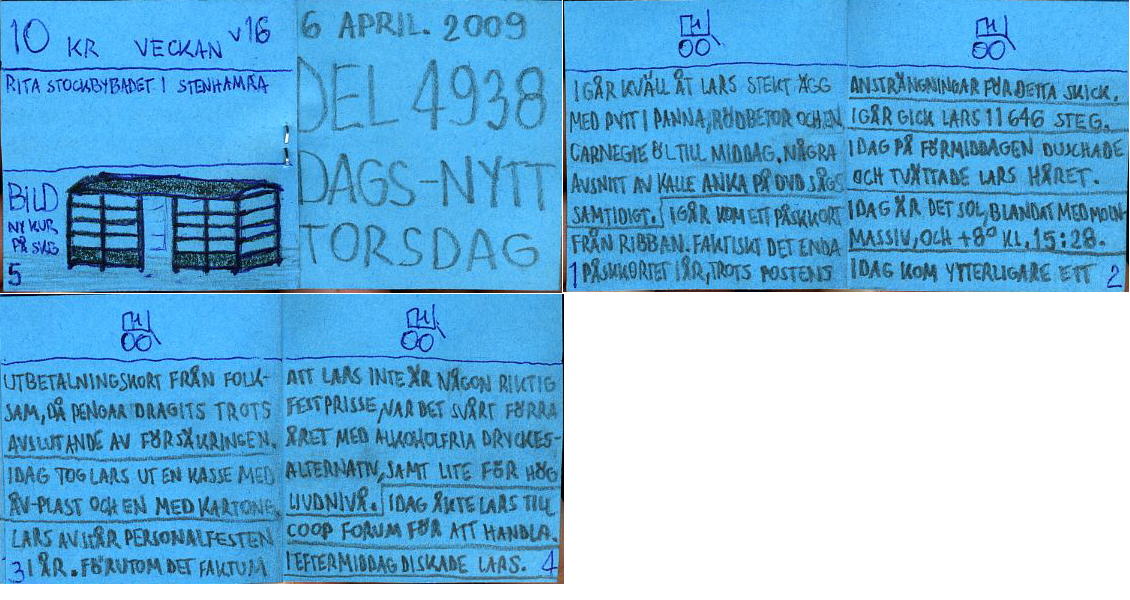 10 KR VECKAN V16
RITA STOCKBYBADET I STENHAMRA
BILD
NY KUR
PÅ SKG
5
6 APRIL. 2009
DEL 4938
DAGS-NYTT
TORSDAG
IGÅR KVÄLL ÅT LARS STEKT ÄGG
MED PYTT I PANNA, RÖDBETOR OCH EN
CARNEGIE ÖL TILL MIDDAG. NÅGRA
AVSNITT AV KALLE ANKA PÅ DVD SÅGS
SAMTIDIGT. IGÅR KOM ETT PÅSKKORT
FRÅN RIBBAN. FAKTISKT DET ENDA
1 PÅSKKORTET I ÅR, TROTS POSTENS
ANSTRÄNGNINGAR FÖR DETTA SKICK.
IGÅR GICK LARS 11 646 STEG.
IDAG PÅ FÖRMIDDAGEN DUSCHADE
OCH TVÄTTADE LARS HÅRET.
IDAG ÄR DET SOL, BLANDAT MED MOLN-
MASSIV, OCH +8° KL. 15:28.
IDAG KOM YTTERLIGARE ETT 2
UTBETALNINGSKORT FRÅN FOLK-
SAM, DÅ PENGAR DRAGITS TROTS
AVSLUTANDE AV FÖRSÄKRINGEN.
IDAG TOG LARS UT EN KASSE MED
ÅV-PLAST OCH EN MED KARTONG.
LARS AVSTÅR PERSONALFESTEN
3 I ÅR. FÖRUTOM DET FAKTUM
ATT LARS INTE ÄR NÅGON RIKTIG
FESTPRISSE, VAR DET SVÅRT FÖRRA
ÅRET MED ALKOHOLFRIA DRYCKES-
ALTERNATIV, SAMT LITE FÖR HÖG
LJUDNIVÅ. IDAG ÅKTE LARS TILL
COOP FORUM FÖR ATT HANDLA.
I EFTERMIDDAG DISKADE LARS. 4